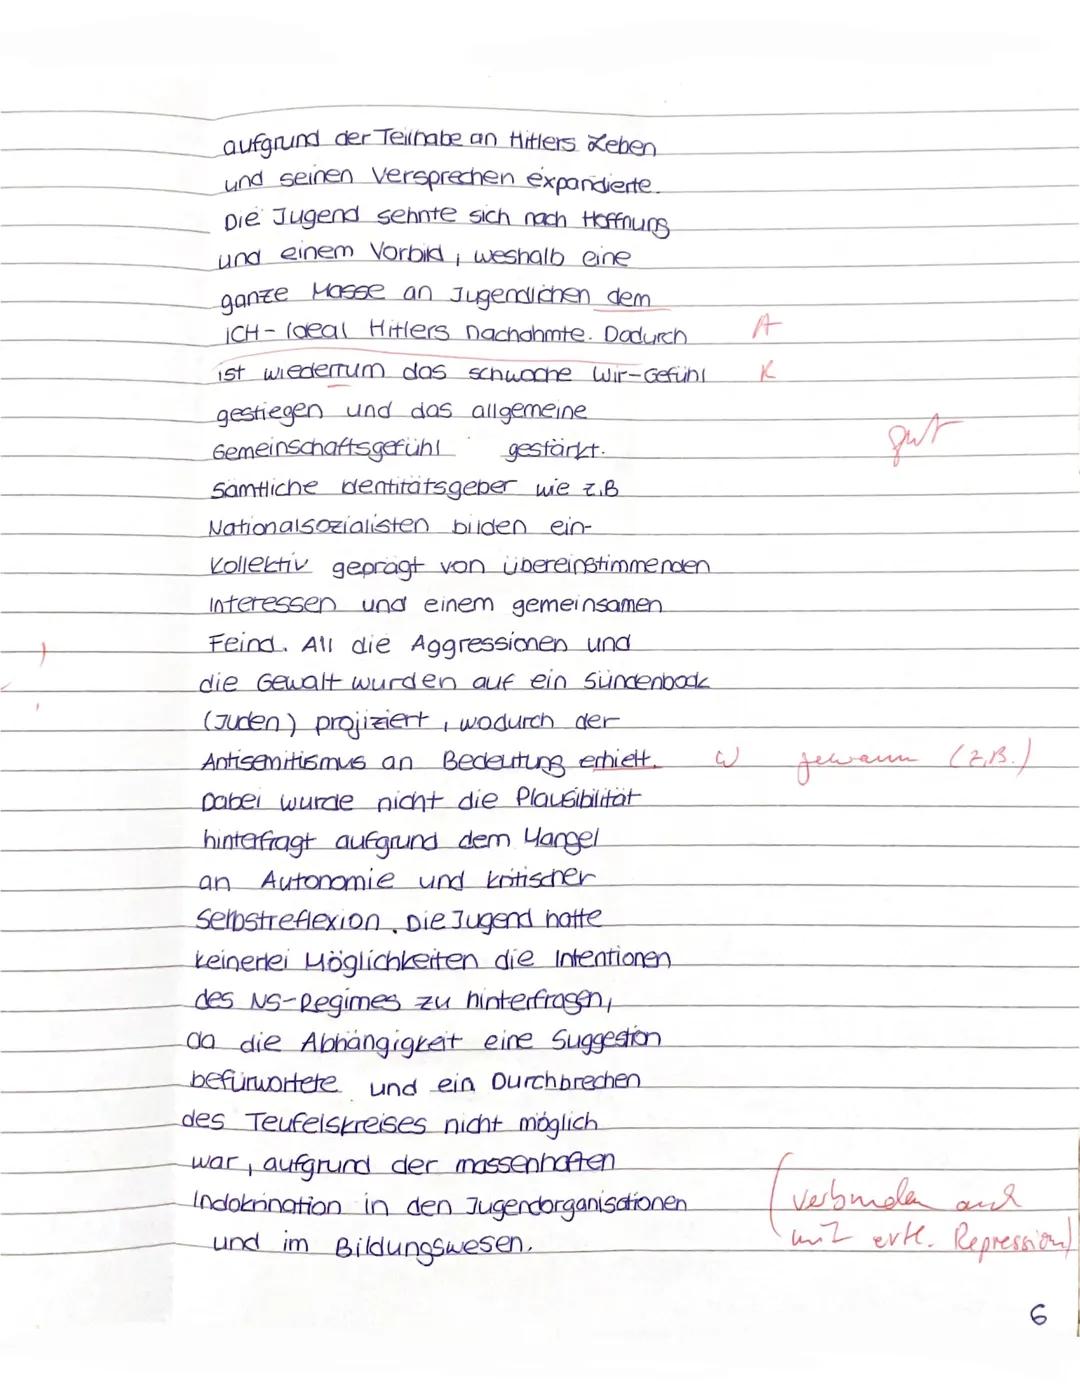 aufgrund der Teilhabe an Hitlers Leben
und seinen Versprechen expandierte.
Die Jugend sehnte sich nach Hoffnung
und einem Vorbild, weshalb eine
ganze Masse an Jugendlichen dem
ICH-Ideal Hitlers nachahmte. Dadurch A
ist wiederrum das schwache Wir-Gefühl R
gestiegen und das allgemeine
Gemeinschaftsgefühl gestärkt. gut
Sämtliche Identitätsgeber wie z.B
Nationalsozialisten bilden ein
Kollektiv geprägt von übereinstimmenden
Interessen und einem gemeinsamen
Feind. All die Aggressionen und
die Gewalt wurden auf ein Sündenbock
(Juden) projiziert, wodurch der
Antisemitismus an Bedeutung erhielt. W gewann (z.B.)
Dabei wurde nicht die Plausibilität
hinterfragt aufgrund dem Mangel
an Autonomie und kritischer
Selbstreflexion. Die Jugend hatte
keinerlei Möglichkeiten die Intentionen
des NS-Regimes zu hinterfragen,
da die Abhängigkeit eine Suggestion
befürwortete und ein Durchbrechen
des Teufelskreises nicht möglich
war, aufgrund der massenhaften
Indokrination in den Jugendorganisationen (verbunden auch
und im Bildungswesen. mit evtl. Repression)
6